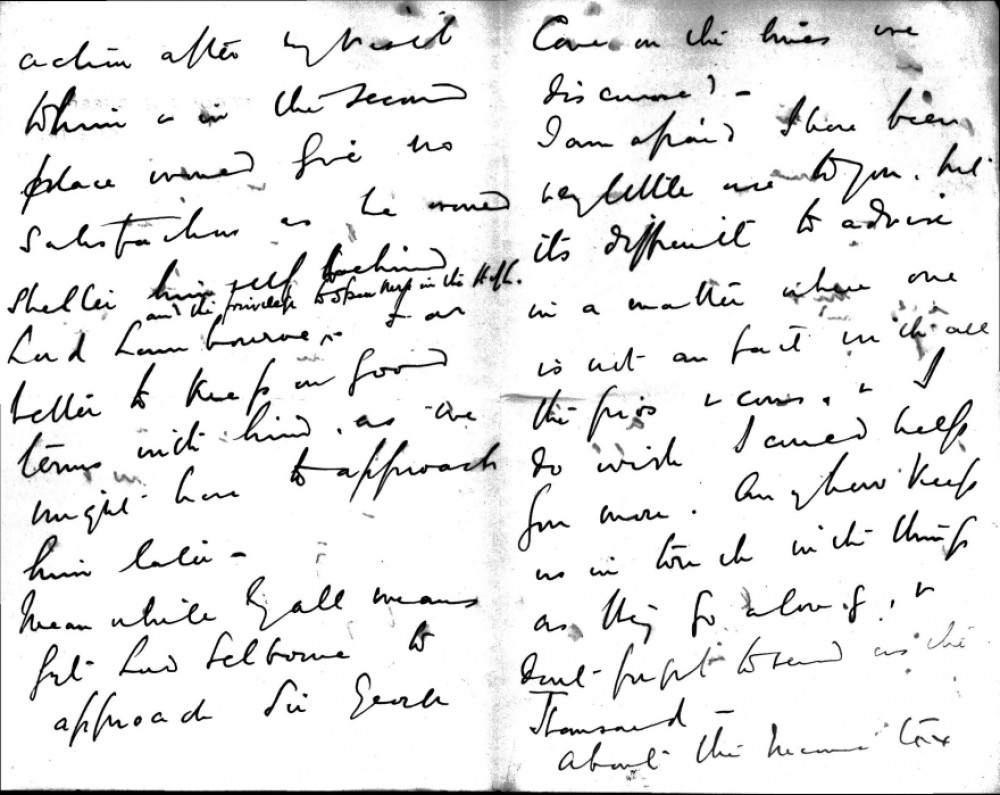 action after my visit
to him & in the second
place would give no
satisfaction as he would
shelter himself behind
and the privilege to speak
Lord Lambourne, - Far
better to keep on good
terms with him, as we
might have to approach
him later -
Meanwhile by all means
get Lord Selborne to
approach Sir George
Cave on the lines we
discussed -
I am afraid I have been
very little use to you, but
its difficult to advise
in a matter where one
is not au fait with all
the pros & cons. & I
do wish I could help
you more. Anyhow keep
us in touch with things
as they go along, &
don't forget to send us the
Thousand -
About the Income tax